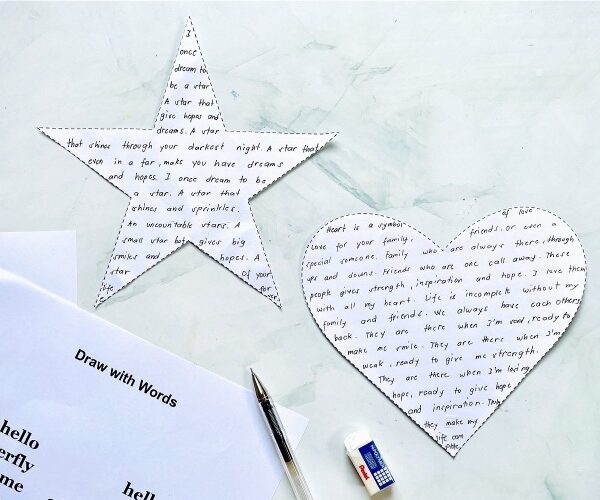 I
once
dream to
be a star
A star that
give hopes and
dreams. A star
that shines through your darkest night. A star that
even in a far, make you have dreams
and hopes. I once dream to be
a star. A star that
shines and sprinkles.
An uncountable stars. A
small star but gives big
smiles and hopes. A
star Of your
life for
Heart is a symbol of love
Love for your family, friends, or even a
special someone. Family who are always there, through
ups and downs. Friends who are one call away. These
people gives strength, inspiration and hope. I love them
with all my heart. Life is incomplete without my
family and friends. We always have each others
back. They are there when I'm sad, ready to
make me smile. They are there when I'm
weak, ready to give me strength.
They are there when I'm losing
hope, ready to give hope
and inspiration. Truly
they make my
life com
plete.
Draw with Words
hello
erfly
me
hell
Pentel